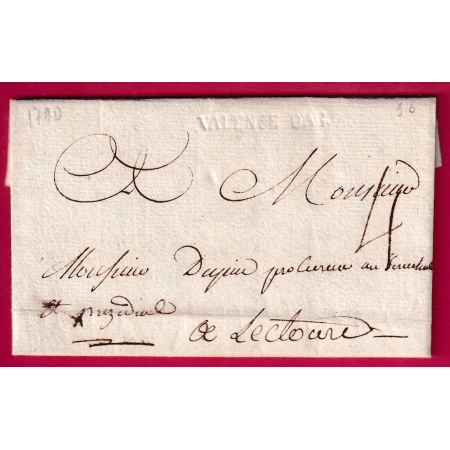 1790
36
VALENCE D'AG
A Monsieur
4
Monsieur Dupin procureur au Senechal
et presidial
A Lectoure